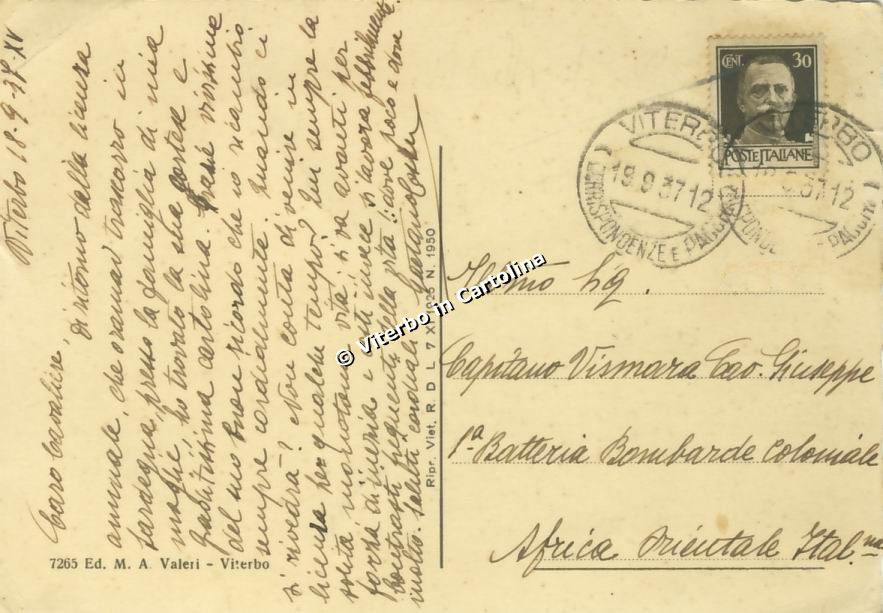 Viterbo 18-9-37-XV
Caro Cavaliere,
di ritorno dalla licenza
annuale, che oramai trascorro in
Sardegna presso la famiglia di mia
moglie, ho trovato la sua cortese e
graditissima cartolina. Grazie vivissime
del suo buon ricordo che io ricambio
sempre cordialmente. Quando ci
si rivedrà? Non conta di venire in
licenza per qualche tempo? Qui sempre la
solita monotona vita; si va avanti per
forza di inerzia e costì invece si lavora febbrilmente.
Contrasti frequenti della vita: dove poco e dove
molto. Saluti cordiali Gaetano
7265 Ed. M. A. Valeri - Viterbo
Ripr. Viet. R. D. L. 7 XI 1925 N. 1950
© Viterbo in Cartolina
CENT. 30
POSTE ITALIANE
VITERBO
19.9.37.12
CORRISPONDENZE E PACCHI
VITERBO
19.9.37.12
CORRISPONDENZE E PACCHI
Ill.mo Sig.
Capitano Vismara Cav. Giuseppe
1ª Batteria Bombarde Coloniale
Africa Orientale Ital.na